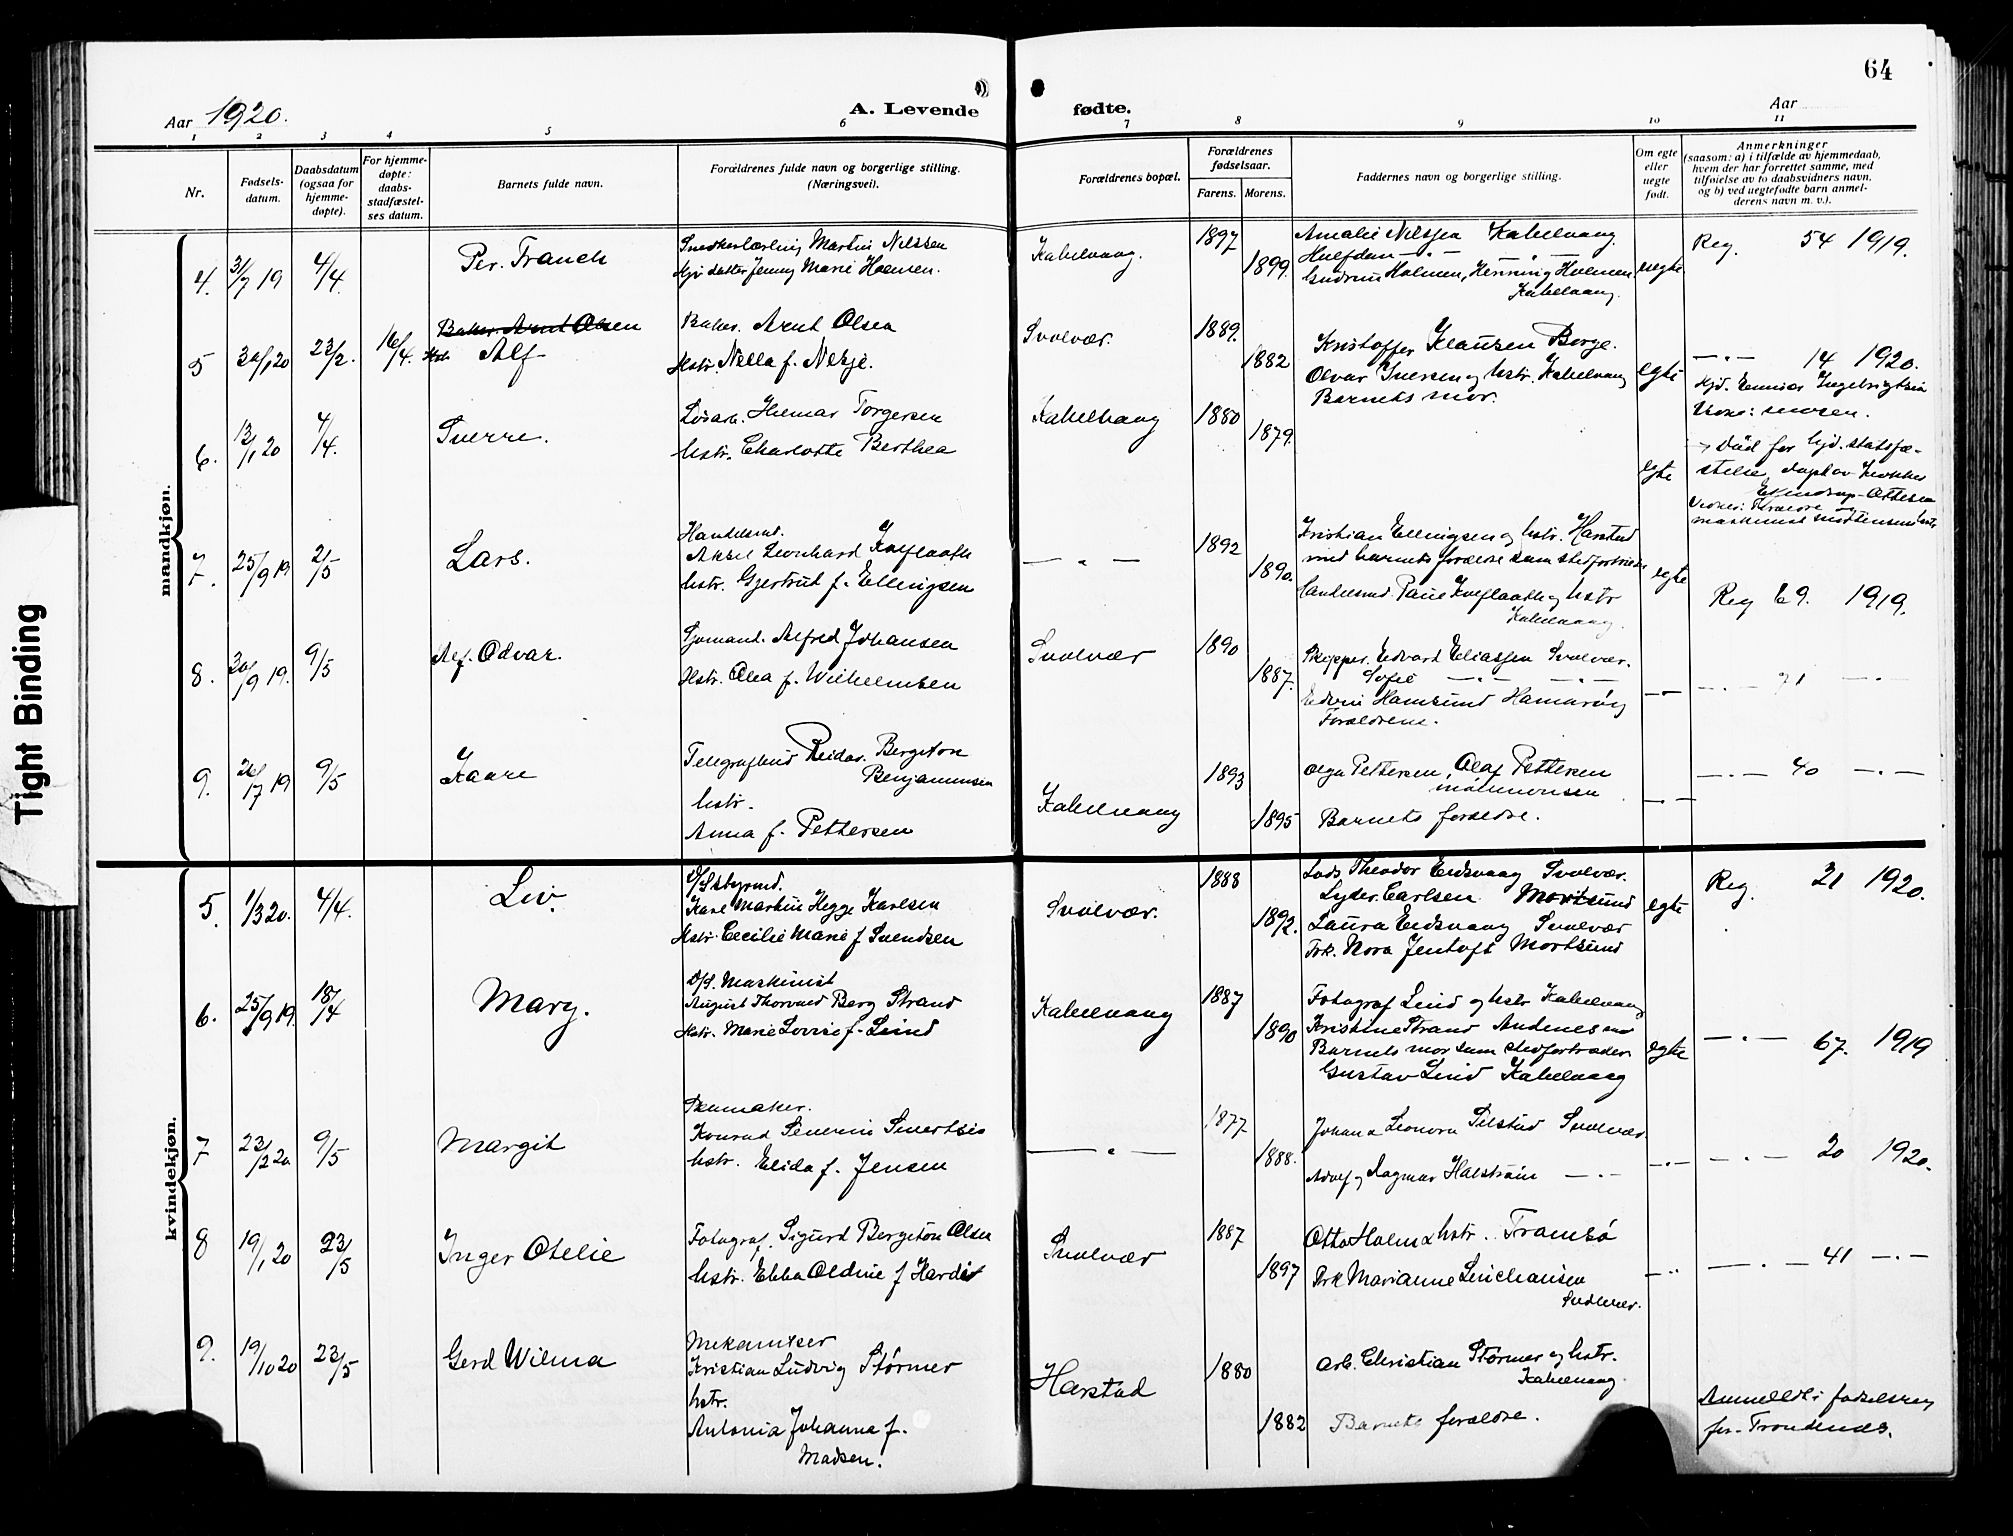 64
Aar 1920.
A. Levende fødte.
Aar
1 2 3 4 5 6 7 8 9 10 11
Nr.
Fødsels-
datum.
Daabsdatum
(ogsaa for
hjemme-
døpte).
For hjemme-
døpte:
daabs-
stadfæstel-
ses datum.
Barnets fulde navn.
Forældrenes fulde navn og borgerlige stilling.
(Næringsvei).
Forældrenes bopæl.
Forældrenes
fødselsaar.
Farens. Morens.
Faddernes navn og borgerlige stilling.
Om egte
eller
uegte
født.
Anmerkninger
(saasom: a) i tilfælde av hjemmedaab,
hvem der har forrettet samme, med
tilføielse av to daabsvidners navn,
og b) ved uegtefødte barn anmel-
derens navn m. v.).
mandkjøn.
4. 31/7 19 4/4.
Per. Franck
Snedkerlærling Martin Nilssen
Jenny Marie Holmen.
Kabelvaag.
1897
1899.
Amalie Nilssen Kabelvaag.
Halfdan — " — — " —
Gudrun Holmen, Henning Holmen
Kabelvaag.
uegte
Reg. 54 1919.
5 30/1 20 23/2. 16/4.
Baker. Arnt Olsen
Alf
Baker. Arnt Olsen
Hstr. Nella f. Nesje.
Svolvær.
1889.
1882
Kristoffer Klausen Borge.
Olvar Iversen og hstr. Kabelvaag
Barnets mor.
egte
— " — 14 1920.
6. 13/1 20 4/4.
Sverre.
Løsarb. Hilmar Torgersen
hstr. Charlotte Berthea
Kabelvaag
1880
1879.
egte
Død før hjd. statsfæ-
stelse,
7. 25/9 19 2/5
Lars.
Handelsmd.
Aksel Leonhard Kalflaath
hstr. Gjertrud f. Ellingsen
— " —
1892
1890.
Kristian Ellingsen og hstr. Harstad
med barnets forældre som stedfortræder
Handelsmd. Paul Kalflaath og hstr
Kabelvaag.
egte
Reg 69. 1919.
8. 30/9 19. 9/5
Alf. Odvar.
Sjømand. Alfred Johansen
Hstr. Olea f. Wilhelmsen
Svolvær
1890
1887.
Skipper. Edvard Eliassen Svolvær.
Sofie — " — — " —
Hamsund Hamarøy
Forældrene.
— " —
— " — 71 — " —
9. 26/7 19 9/5
Kaare
Telegrafbud Reidar. Bergeton
Benjaminsen
hstr.
Anna f. Pettersen
Kabelvaag
1893
1895
Olga Pettersen, Olaf Pettersen
Barnets forældre.
— " —
— " — 40 — " —
kvindekjøn.
5. 1/3 20. 4/4.
Liv.
Karl Martin Hegge Karlsen
Hstr. Cecilie Marie f Svendsen
Svolvær.
1888
1892.
Lods Theodor Eidsvaag Svolvær.
Lyder. Carlsen Mortsund
Laura Eidsvaag Svolvær
Frk. Nora Jentoft Mortsund
egte
Reg. 21 1920.
6. 25/9 19. 18/4
Mary.
D/S. Maskinist
August Thorvald Berg Strand
Hstr. Marie Lovise f. Lind
Kabelvaag
1887
1890
Fotograf Lind og hstr Kabelvaag
Kristine Strand Andenes
Barnets mor som stedfortræder
Gustav Lind Kabelvaag
egte
— " — 67. 1919
7 23/2 20 9/5
Margit
Skomaker.
Konrad Severin Sivertsen
hstr. Elida f. Jensen
— " —
1877
1888.
Johan & Leonora Silstad Svolvær.
Adolf og Dagmar Halstrøm — " —
— " —
— " — 20 1920.
8 19/1 20 23/5
Inger Otelie
Fotograf. Sigurd Bergeton Olsen
hstr. Ebba Oldine f
Svolvær
1887
1897
Otto Holm & hstr. Tromsø
Frk Marianne
Svolvær.
— " —
— " — 41 — " —
9. 19/10 20 23/5
Gerd Wilma
Mekaniker
Kristian Ludvig Størmer
hstr.
Antonia Johanna f.
Madsen.
Harstad
1880
1882
Arb. Christian Størmer og hstr.
Kabelvaag.
Barnets forældre.
Anmeldt i fødselsreg
for Trondenes.
Tight Binding